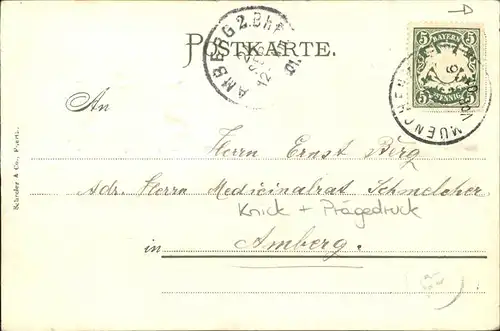 POSTKARTE.
AMBERG 2. Bhf
BAYERN
5 5
PFENNIG
5 5
MUENCHEN
An
Herrn Ernst Berg
Adr. Herrn Medicinalrat Schmelcher
Knick + Prägedruck
in Amberg.